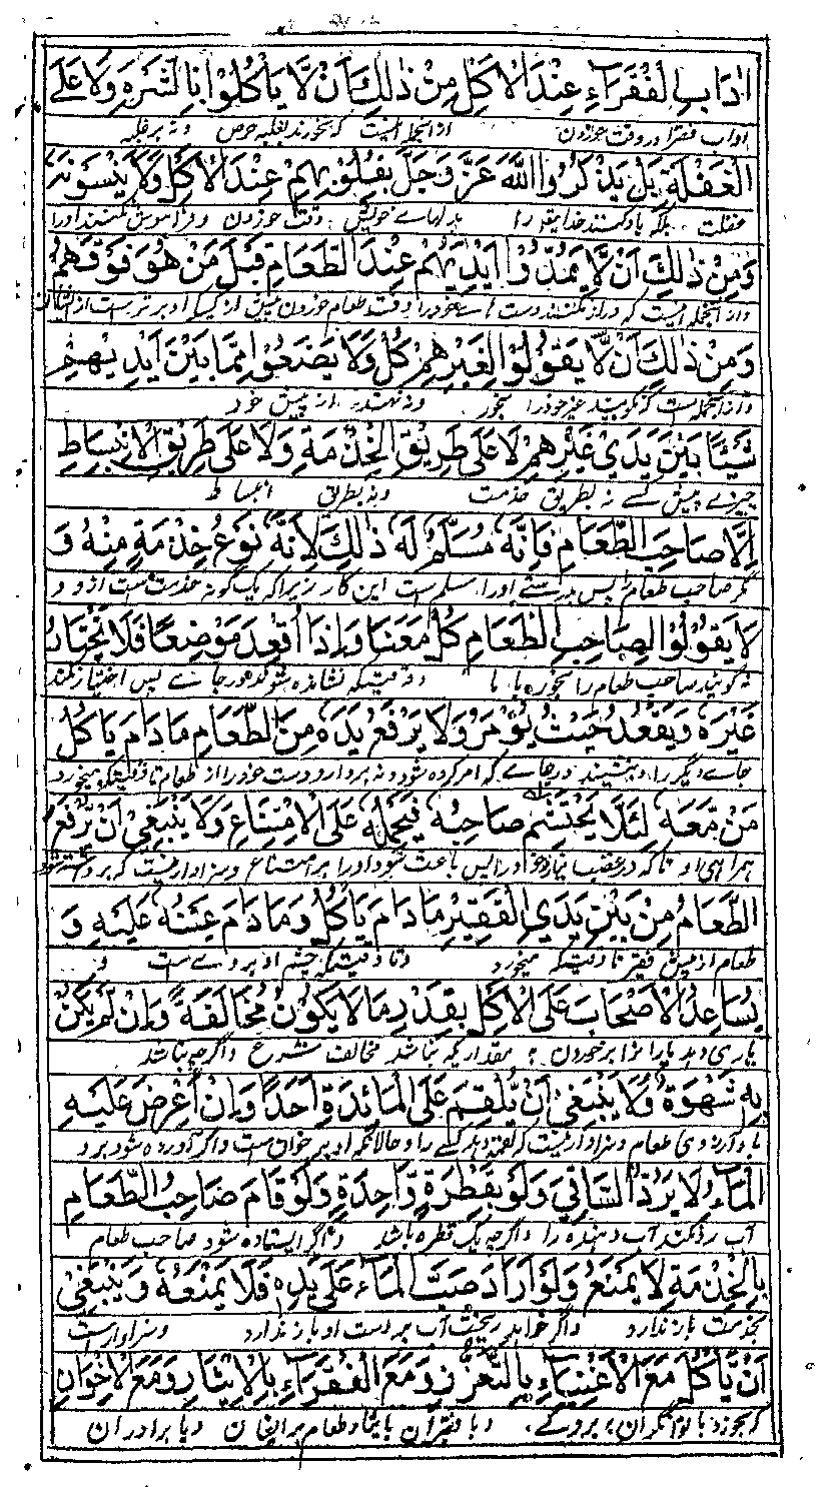 اٰدَابِ الْفُقَرَاءِ عِنْدَ الْاَكْلِ مِنْ ذٰلِكَ اَنْ لَّا يَاْكُلُوْا بِالشَّرَهِ وَلَا عَلَى
اداب فقرا در وقت خوردن ازانجمله اینست که نخورند بغلبه حرص و نه بر غلبه
الْغَفْلَةِ بَلْ يَذْكُرُوا اللّٰهَ عَزَّ وَجَلَّ بِقُلُوْبِهِمْ عِنْدَ الْاَكْلِ وَلَا يَنْسَوْنَهٗ
غفلت بلکه یاد کنند خدایتعالی را بدلهاے خویش وقت خوردن و فراموش نکنند او را
وَمِنْ ذٰلِكَ اَنْ لَّا يَمُدُّوْا اَيْدِيَهُمْ عِنْدَ الطَّعَامِ قَبْلَ مَنْ هُوَ فَوْقَهُمْ
و از انجمله اینست که دراز نکنند دست هاے خود را وقت طعام خوردن پیش از کسیکه او برتر است از ایشان
وَمِنْ ذٰلِكَ اَنْ لَّا يَقُوْلُوْا لِغَيْرِهِمْ كُلْ وَلَا يَضَعُوْا مِمَّا بَيْنَ اَيْدِيْهِمْ
و از انجمله است که نگویند غیر خود را بخور و نه نهند از پیش خود
شَيْئًا بَيْنَ يَدَيْ غَيْرِهِمْ لَا عَلٰى طَرِيْقِ الْخِدْمَةِ وَلَا عَلٰى طَرِيْقِ الْاِنْبِسَاطِ
چیزے پیش کسے نه بطریق خدمت و نه بطریق انبساط
اِلَّا صَاحِبَ الطَّعَامِ فَاِنَّهٗ مُسَلَّمٌ لَهٗ ذٰلِكَ لِاَنَّهٗ نَوْعُ خِدْمَةٍ مِنْهُ وَ
مگر صاحب طعام پس بدرستے او را مسلم است این کار زیرا که یک گونه خدمت است از و و
لَا يَقُوْلُوْا لِصَاحِبِ الطَّعَامِ كُلْ مَعَنَا وَاِذَا اُقْعِدَ مَوْضِعًا فَلَا يَخْتَارُ
نه گویند صاحب طعام را بخور با ما و وقتیکه نشانده شود در جاے پس اختیار نکند
غَيْرَهٗ وَيَقْعُدُ حَيْثُ يُؤْمَرُ وَلَا يَرْفَعُ يَدَهٗ مِنَ الطَّعَامِ مَا دَامَ يَاْكُلُ
جاے دیگر را و بنشیند در جاے که امر کرده شود و نه بردارد دست خود را از طعام تا وقتیکه میخورد
مَنْ مَّعَهٗ لِئَلَّا يَحْتَشِمَ صَاحِبُهٗ فَيَحْمِلَهٗ عَلَى الْاِمْتِنَاعِ وَلَا يَنْبَغِيْ اَنْ يُّرْفَعَ
همراهی او تا که پس باعث شود او را بر امتناع و سزاوار نیست که برداشته شود
الطَّعَامُ مِنْ بَيْنِ يَدَيِ الْفَقِيْرِ مَا دَامَ يَاْكُلُ وَمَا دَامَ عَيْنُهٗ عَلَيْهِ وَ
طعام از پیش فقیر تا وقتیکه میخورد و تا وقتیکه چشم او بر وے ست و
يُسَاعِدُ الْاَصْحَابَ عَلَى الْاَكْلِ بِقَدْرِ مَا لَا يَكُوْنُ مُخَالَفَةً وَاِنْ لَّمْ يَكُنْ
یاری دهد یاران را بر خوردن بمقداریکه نباشد مخالفت شرع و اگرچه نباشد
بِهٖ شَهْوَةٌ وَلَا يَنْبَغِيْ اَنْ يُّلْقِمَ عَلَى الْمَائِدَةِ اَحَدًا وَاِنْ اُعْرِضَ عَلَيْهِ
باو آرزوی طعام و سزاوار نیست که لقمه دهد کسے را و حالانکه او بر خوان است و اگر آورده شود برو
الْمَاءُ لَا يَرُدُّ السَّاقِيَ وَلَوْ بِقَطْرَةٍ وَّاحِدَةٍ وَلَوْ قَامَ صَاحِبُ الطَّعَامِ
آب رد نکند آب دهنده را و اگرچه یک قطره باشد و اگر ایستاده شود صاحب طعام
بِالْخِدْمَةِ لَا يَمْنَعُ وَلَوْ اَرَادَ صَبَّ الْمَاءِ عَلٰى يَدِهٖ فَلَا يَمْنَعُهٗ وَيَنْبَغِيْ
بخدمت باز ندارد و اگر خواهد ریختن آب بر دست او باز ندارد و سزاوار است
اَنْ يَّاْكُلَ مَعَ الْاَغْنِيَاءِ بِالتَّعَزُّزِ وَمَعَ الْفُقَرَاءِ بِالْاِيْثَارِ وَمَعَ الْاِخْوَانِ
که بخورد با توانگران و با فقیران بایثار طعام بر ایشان و با برادران